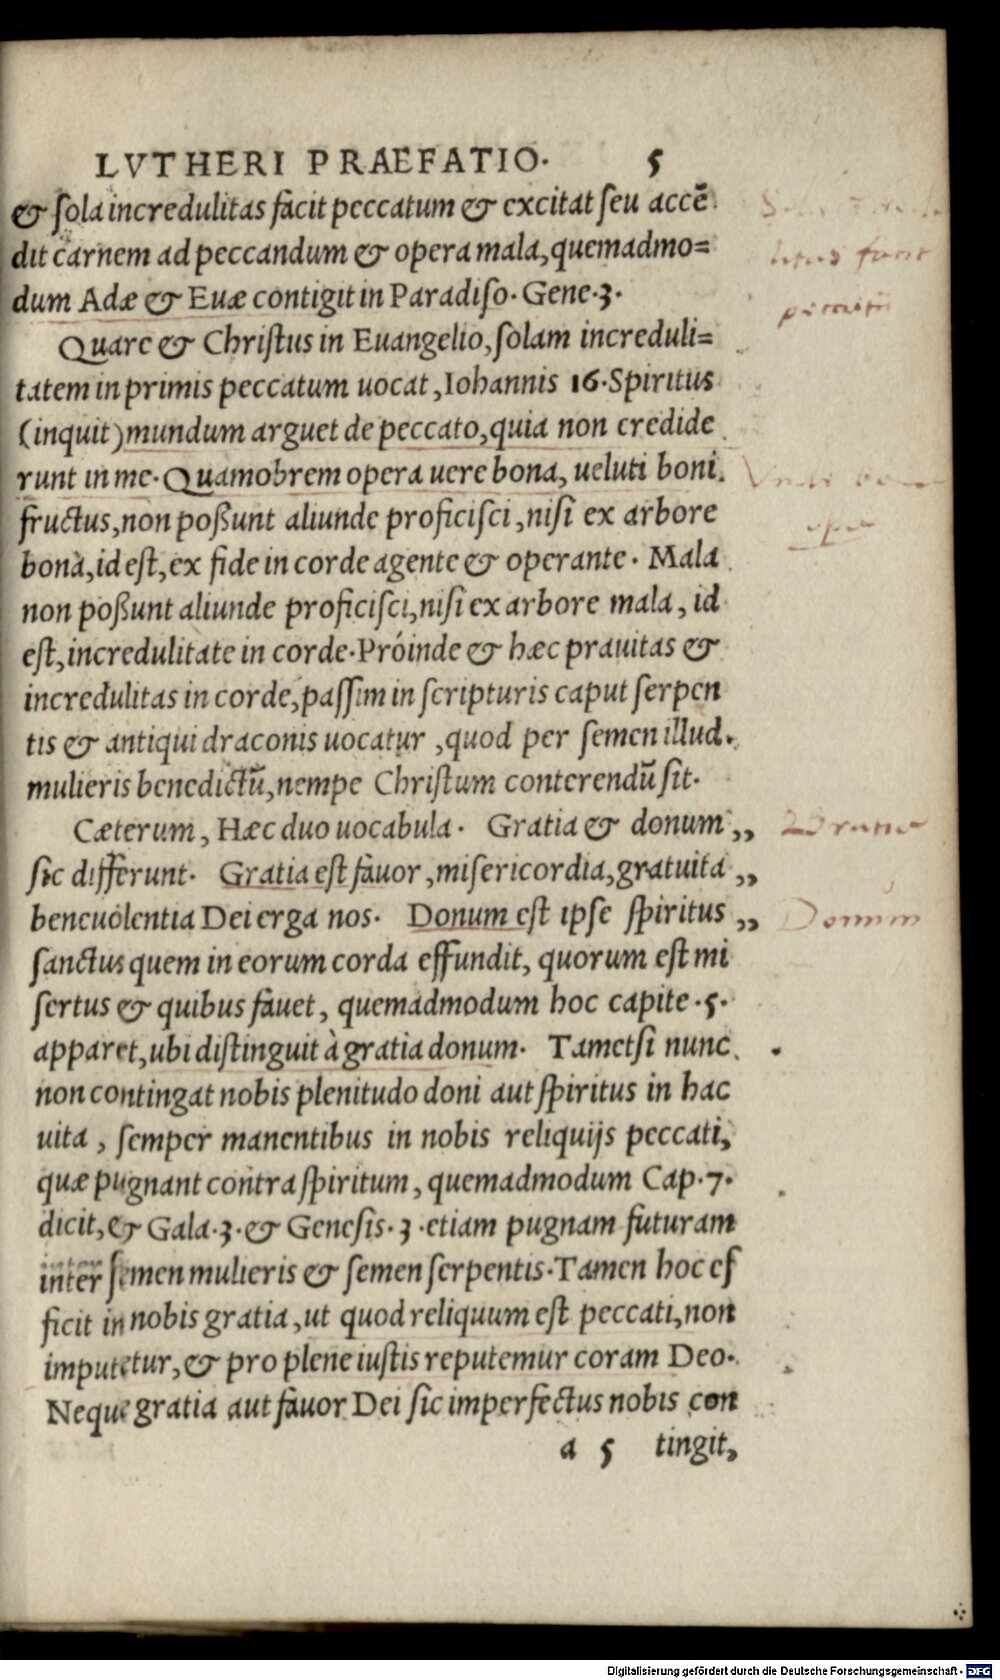 LVTHERI PRAEFATIO. 5
& sola incredulitas facit peccatum & excitat seu accē
dit carnem ad peccandum & opera mala, quemadmo=
dum Adæ & Euæ contigit in Paradiso. Gene.3.
Quare & Christus in Euangelio, solam increduli=
tatem in primis peccatum uocat, Iohannis 16. Spiritus
(inquit) mundum arguet de peccato, quia non credide
runt in me. Quamobrem opera uere bona, ueluti boni
fructus, non poßunt aliunde proficisci, nisi ex arbore
bona, id est, ex fide in corde agente & operante. Mala
non poßunt aliunde proficisci, nisi ex arbore mala, id
est, incredulitate in corde. Próinde & hæc prauitas &
incredulitas in corde, passim in scripturis caput serpen
tis & antiqui draconis uocatur, quod per semen illud
mulieris benedictū, nempe Christum conterendū sit.
Cæterum, Hæc duo uocabula. Gratia & donum „
sic differunt. Gratia est fauor, misericordia, gratuita „
beneuolentia Dei erga nos. Donum est ipse spiritus „
sanctus quem in eorum corda effundit, quorum est mi
sertus & quibus fauet, quemadmodum hoc capite .5.
apparet, ubi distinguit à gratia donum. Tametsi nunc
non contingat nobis plenitudo doni aut spiritus in hac
uita, semper manentibus in nobis reliquijs peccati,
quæ pugnant contra spiritum, quemadmodum Cap.7.
dicit, & Gala.3. & Genesis.3. etiam pugnam futuram
inter semen mulieris & semen serpentis. Tamen hoc ef
ficit in nobis gratia, ut quod reliquum est peccati, non
imputetur, & pro plene iustis reputemur coram Deo.
Neque gratia aut fauor Dei sic imperfectus nobis con
a 5 tingit,
facit
peccatū
Gratia
Donum
Digitalisierung gefördert durch die Deutsche Forschungsgemeinschaft - DFG